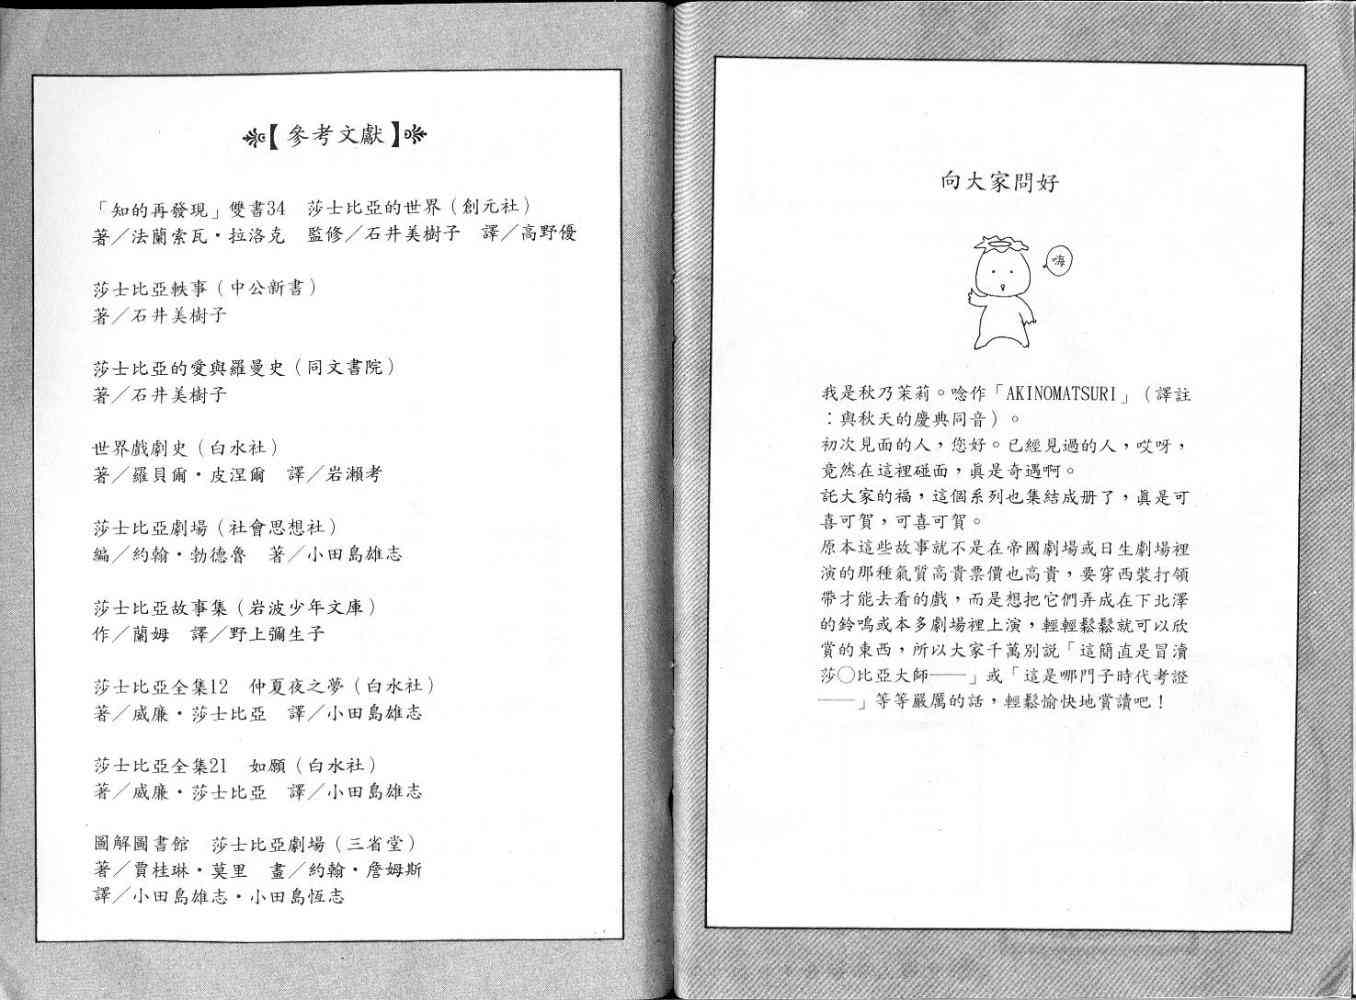 【參考文獻】
「知的再發現」雙書34　莎士比亞的世界（創元社）
著／法蘭索瓦・拉洛克　監修／石井美樹子　譯／高野優
莎士比亞軼事（中公新書）
著／石井美樹子
莎士比亞的愛與羅曼史（同文書院）
著／石井美樹子
世界戲劇史（白水社）
著／羅貝爾・皮涅爾　譯／岩瀨考
莎士比亞劇場（社會思想社）
編／約翰・勃德魯　著／小田島雄志
莎士比亞故事集（岩波少年文庫）
作／蘭姆　譯／野上彌生子
莎士比亞全集12　仲夏夜之夢（白水社）
著／威廉・莎士比亞　譯／小田島雄志
莎士比亞全集21　如願（白水社）
著／威廉・莎士比亞　譯／小田島雄志
圖解圖書館　莎士比亞劇場（三省堂）
著／賈桂琳・莫里　畫／約翰・詹姆斯
譯／小田島雄志・小田島恆志
向大家問好
嗨
我是秋乃茉莉。唸作「AKINOMATSURI」（譯註
：與秋天的慶典同音）。
初次見面的人，您好。已經見過的人，哎呀，
竟然在這裡碰面，真是奇遇啊。
託大家的福，這個系列也集結成册了，真是可
喜可賀，可喜可賀。
原本這些故事就不是在帝國劇場或日生劇場裡
演的那種氣質高貴票價也高貴，要穿西裝打領
帶才能去看的戲，而是想把它們弄成在下北澤
的鈴鳴或本多劇場裡上演，輕輕鬆鬆就可以欣
賞的東西，所以大家千萬別説「這簡直是冒瀆
莎○比亞大師——」或「這是哪門子時代考證
——」等等嚴厲的話，輕鬆愉快地賞讀吧！